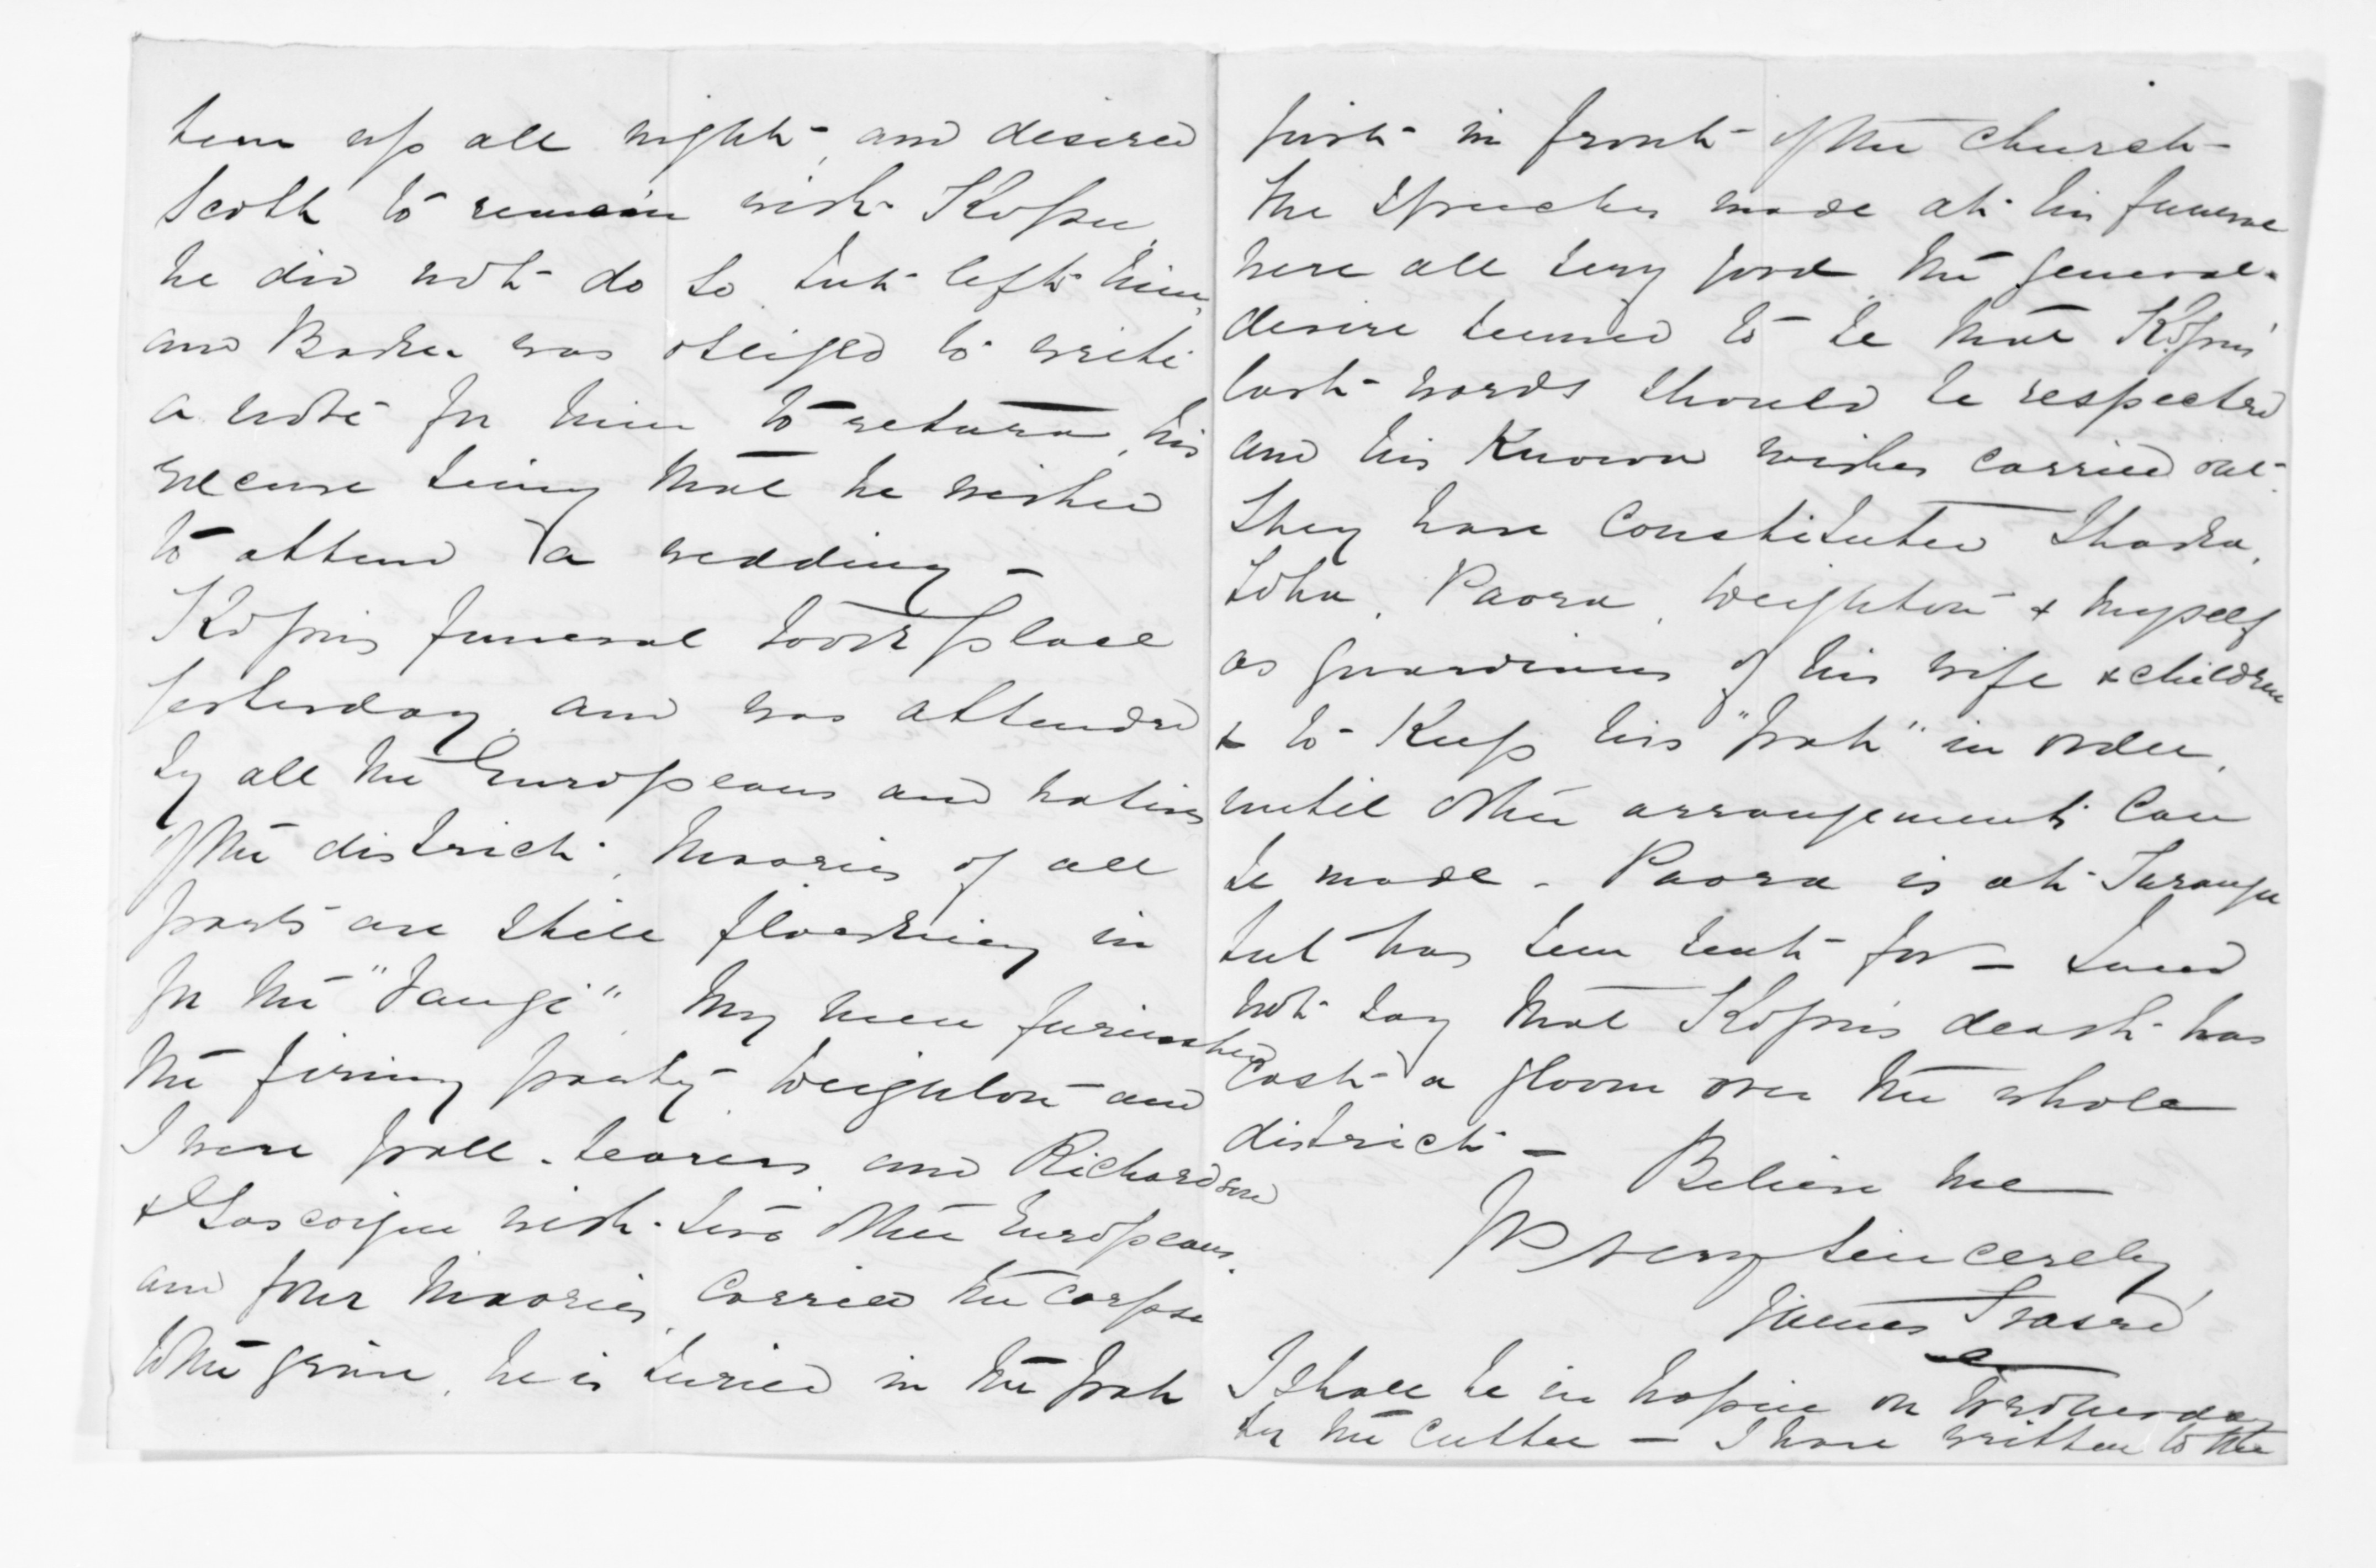 been up all night, and desired
Scott to remain with Kopu,
he did not do so but left him,
and Baker was obliged to write
a note for him to return, his
excuse being that he wished
to attend a wedding –
Kopu's funeral took place
yesterday, and was attended
by all the Europeans and natives
of the district, Maories of all
parts are still flocking in
for the "Tangi". My men furnished
the firing party, Weighton and
I were pall-bearers, and Richardson
& Gascoigne with two other Europeans,
and four Maories, carried the corpse
to the grave, he is buried in the pah
just in front of the church –
The speeches made at his funeral
were all very good, the general
desire seemed to be that Kopu's
last words should be respected
and his known wishes carried out.
They have constituted Ihaka,
Toha, Paora, Weighton & myself
as guardians of his wife & children
& to keep his "pah" in order,
until other arrangements can
be made – Paora is at Turanga
but has been sent for – I need
not say that Kopu's death has
cast a gloom over the whole
district –
Believe me
very sincerely
James Fraser
I shall be in Napier on Wednesday
by the cutter – I have written to the